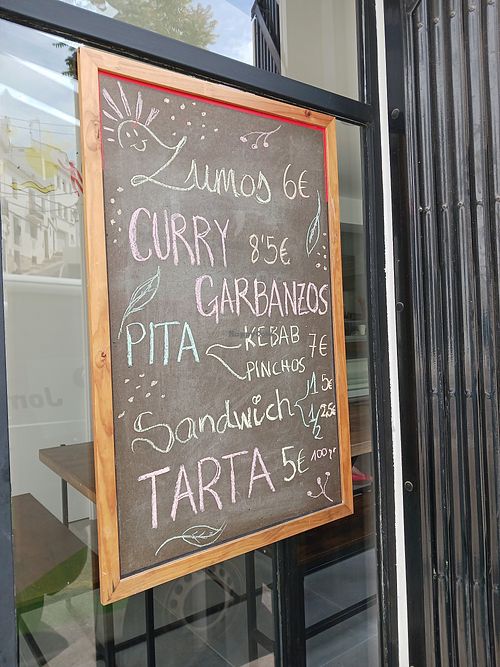 Zumos 6€
CURRY 8'5€
GARBANZOS
PITA KEBAB 7€
PINCHOS
Sandwich 1 5€
1/2 2,5€
TARTA 5€ 100gr